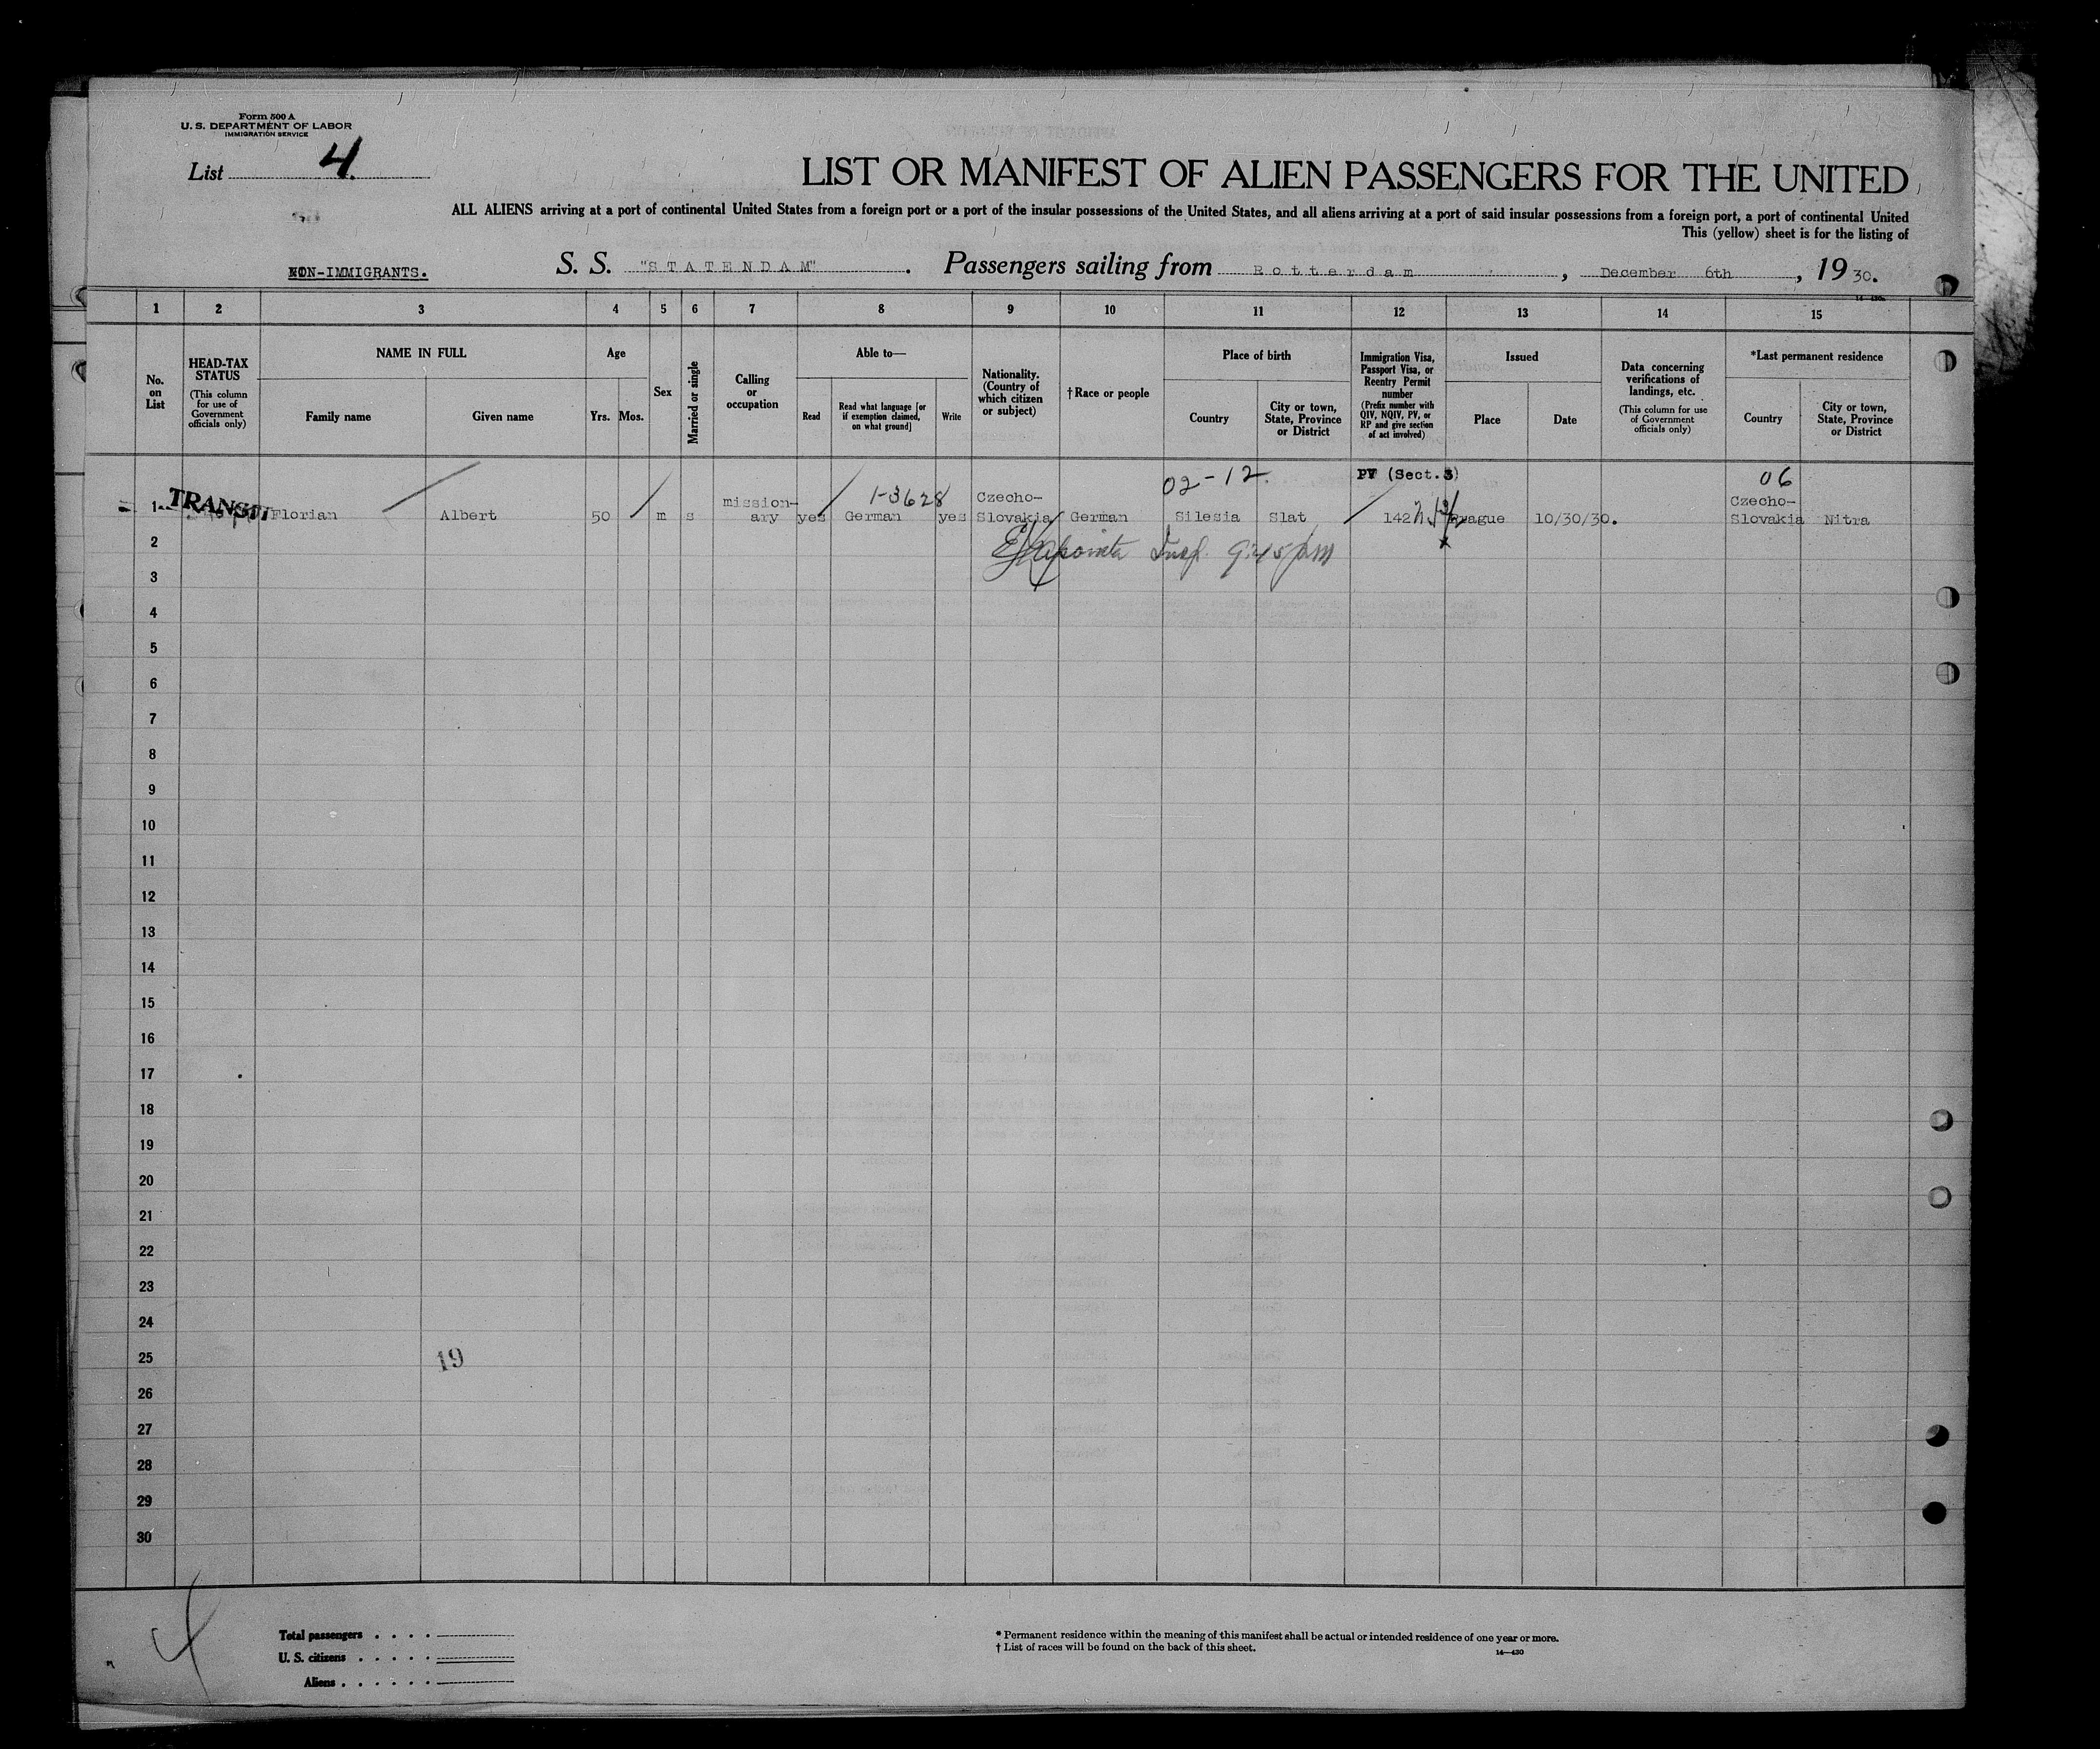 Form 500 A
U. S. DEPARTMENT OF LABOR
IMMIGRATION SERVICE
List 4.
LIST OR MANIFEST OF ALIEN PASSENGERS FOR THE UNITED
ALL ALIENS arriving at a port of continental United States from a foreign port or a port of the insular possessions of the United States, and all aliens arriving at a port of said insular possessions from a foreign port, a port of continental United
This (yellow) sheet is for the listing of
NON-IMMIGRANTS.
S. S. "STATENDAM". Passengers sailing from Rotterdam, December 6th, 1930.
1 2 3 4 5 6 7 8 9 10 11 12 13 14 15
No. on List
HEAD-TAX STATUS
(This column for use of Government officials only)
NAME IN FULL
Family name
Given name
Age
Yrs. Mos.
Sex
Married or single
Calling or occupation
Able to—
Read
Read what language [or if exemption claimed, on what ground]
Write
Nationality. (Country of which citizen or subject)
†Race or people
Place of birth
Country
City or town, State, Province or District
Immigration Visa, Passport Visa, or Reentry Permit number
(Prefix number with QIV, NQIV, PV, or RP and give section of act involved)
Issued
Place
Date
Data concerning verifications of landings, etc.
(This column for use of Government officials only)
*Last permanent residence
Country
City or town, State, Province or District
02-12. PV (Sect.3) 06
mission- 1-3628 Czecho- Czecho-
1 TRANSIT Florian Albert 50 m s ary yes German yes Slovakia German Silesia Slat 142 Prague 10/30/30. Slovakia Nitra
2 Insp. 9:45 pm
3
4
5
6
7
8
9
10
11
12
13
14
15
16
17
18
19
20
21
22
23
24
25 19
26
27
28
29
30
4
Total passengers . . . .
U. S. citizens . . . . .
Aliens . . . . . .
* Permanent residence within the meaning of this manifest shall be actual or intended residence of one year or more.
† List of races will be found on the back of this sheet.
14—430